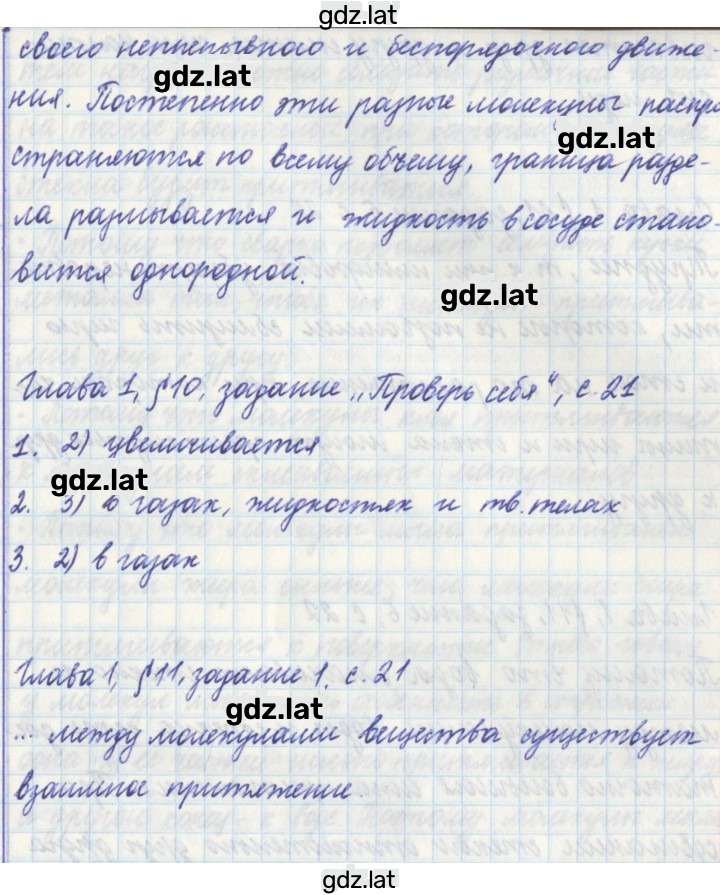 gdz.lat
своего непрерывного и беспорядочного движе-
gdz.lat
ния. Постепенно эти разные молекулы распро
gdz.lat
страняются по всему объему, граница разде-
ла размывается и жидкость в сосуде стано-
вится однородной.
gdz.lat
Глава 1, §10, задание „Проверь себя“, с. 21
1. 2) увеличивается
gdz.lat
2. 3) в газах, жидкостях и тв. телах
3. 2) в газах
Глава 1, §11, задание 1, с. 21
gdz.lat
... между молекулами вещества существует
взаимное притяжение.
gdz.lat
gdz.lat